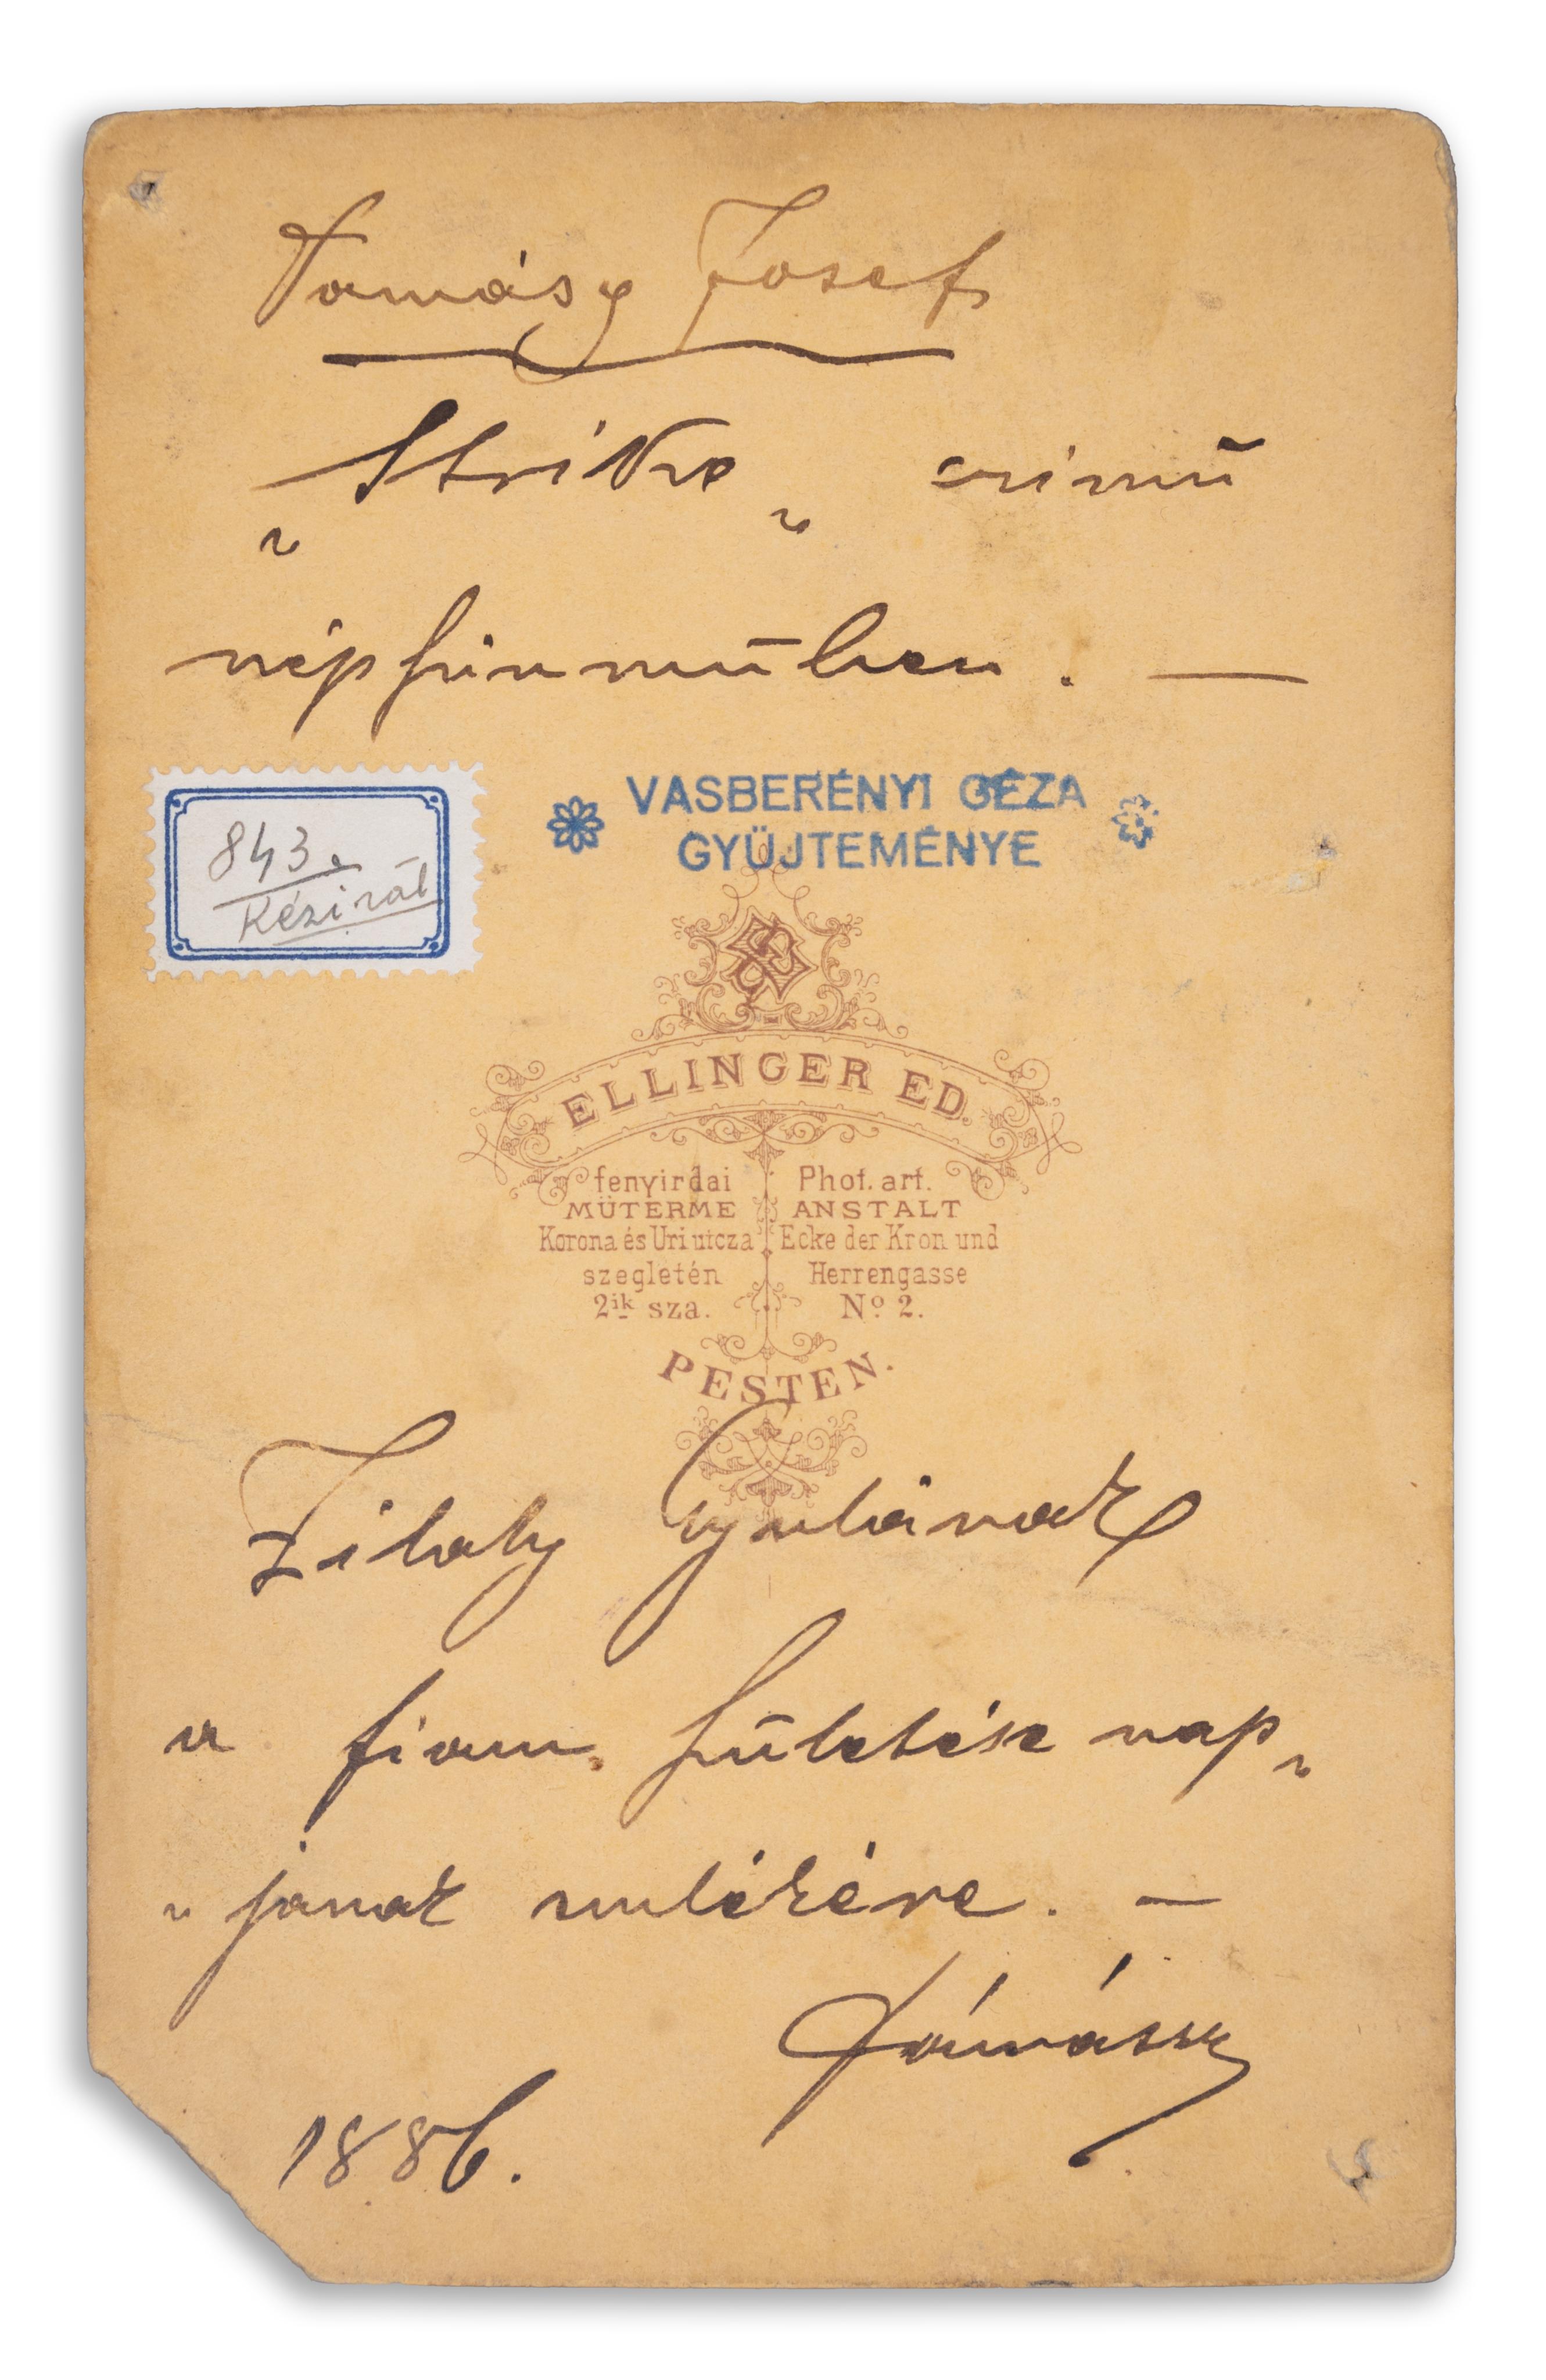 Tamásy József
„Strike„ czimű
népszinműben. —
843.
Kézirat
VASBERÉNYI GÉZA
GYÜJTEMÉNYE
ELLINGER ED.
fenyirdai
MÜTERME
Korona és Uri utcza
szegletén
2ik sza.
Phot. art.
ANSTALT
Ecke der Kron und
Herrengasse
No 2.
PESTEN.
Zilahy Gyulának
a fiam születése nap„
„jának emlékére. —
Tamássy
1886.